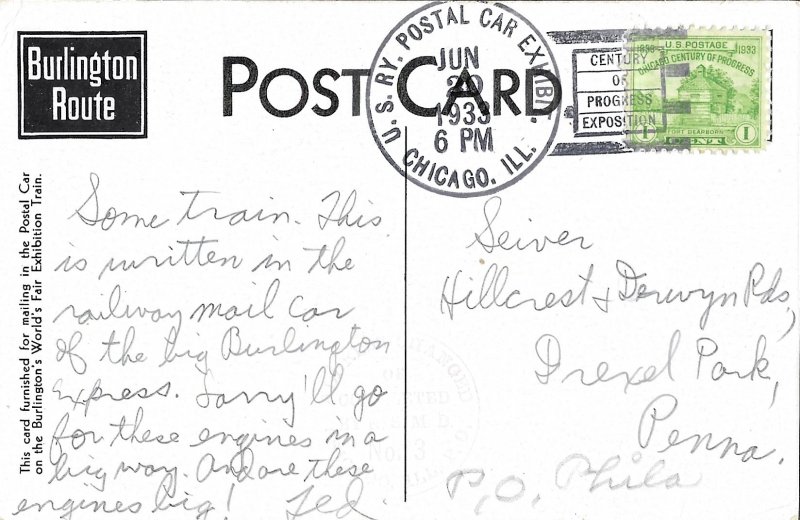 Burlington
Route
POST CARD
U.S. RY. POSTAL CAR EXHIBIT.
JUN
1933
6 PM
CHICAGO, ILL.
CENTURY
OF
PROGRESS
EXPOSITION
U.S. POSTAGE
1933
CHICAGO CENTURY OF PROGRESS
FORT DEARBORN
1 CENT 1
This card furnished for mailing in the Postal Car
on the Burlington's World's Fair Exhibition Train.
Some train. This
is written in the
railway mail car
of the big Burlington
express. Larry'll go
for these engines in a
big way. And are these
engines big! Ted.
Seiver
Hillcrest & Derwyn Rds,
Drexel Park,
Penna.
P.O. Phila